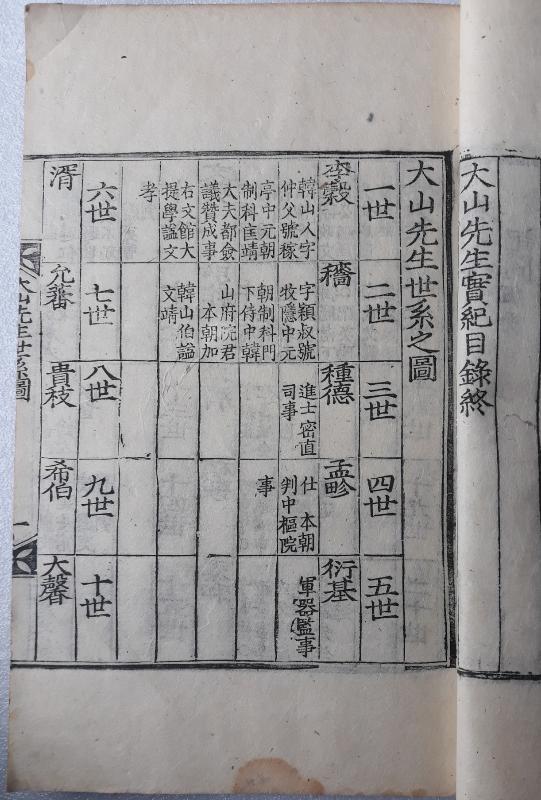 大山先生實紀目錄終
大山先生世系之圖
一世 二世 三世 四世 五世
李穀 穡 種德 孟畛 衍基
韓山人字 字穎叔號 進士密直 仕 本朝 軍器監事
仲父號稼 牧隱中元 司事 判中樞院
亭中元朝 朝制科門 事
制科匡靖 下侍中韓
大夫都僉 山府院君
議贊成事 本朝加
右文館大 韓山伯謚
提學謚文 文靖
孝
六世 七世 八世 九世 十世
湑 允蕃 貴枝 希伯 大馨
大山先生世系圖
一